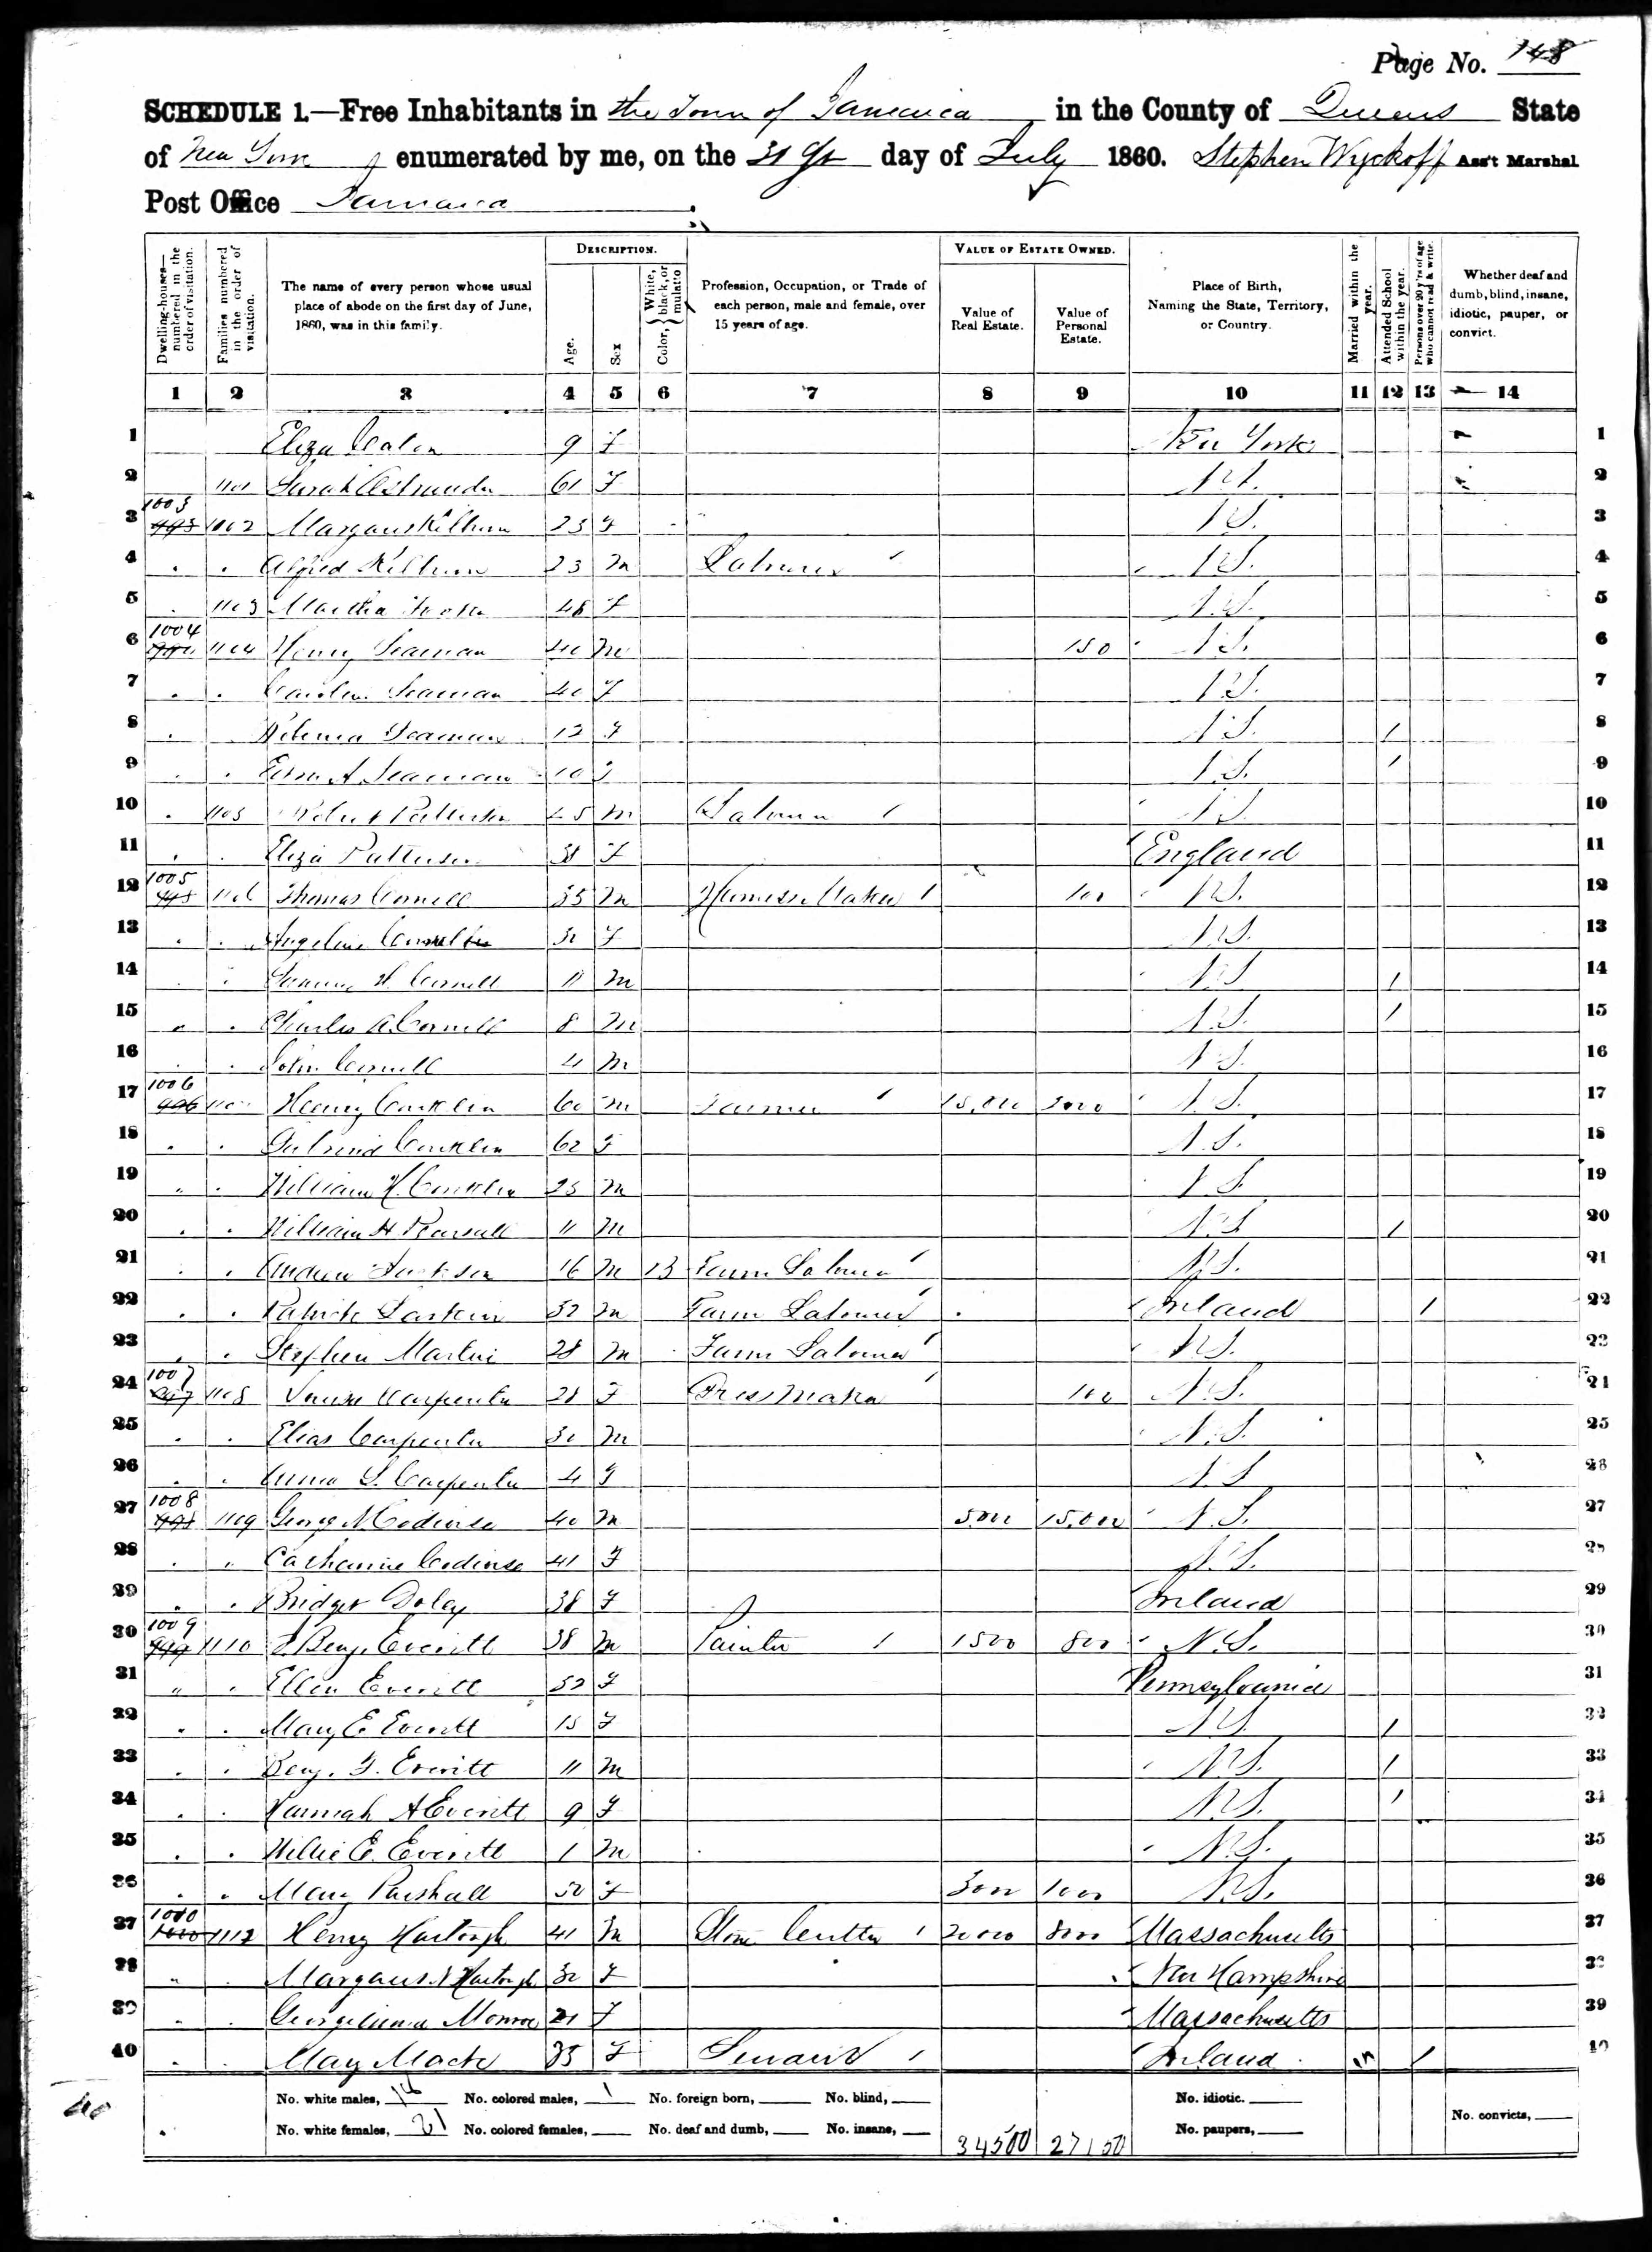 Page No. 148
SCHEDULE 1.—Free Inhabitants in the Town of Jamaica in the County of Queens State
of New York enumerated by me, on the 31st day of July 1860. Stephen Wyckoff Ass't Marshal
Post Office Jamaica
Dwelling-houses—numbered in the order of visitation.
Families numbered in the order of visitation.
The name of every person whose usual place of abode on the first day of June, 1860, was in this family.
DESCRIPTION.
Age.
Sex
Color, } White, black, or mulatto
Profession, Occupation, or Trade of each person, male and female, over 15 years of age.
VALUE OF ESTATE OWNED.
Value of Real Estate.
Value of Personal Estate.
Place of Birth, Naming the State, Territory, or Country.
Married within the year.
Attended School within the year.
Persons over 20 y'rs of age who cannot read & write.
Whether deaf and dumb, blind, insane, idiotic, pauper, or convict.
1 2 3 4 5 6 7 8 9 10 11 12 13 14
1 Eliza 9 F New York 1
2 1101 Sarah 61 F N.Y. 2
3 1003 1102 Margaret 23 F N.Y. 3
4 Alfred 23 M Laborer N.Y. 4
5 1103 Martha 48 F N.Y. 5
6 1004 1104 Henry Seaman 40 M 150 N.Y. 6
7 Caroline Seaman 40 F N.Y. 7
8 Seaman 12 F N.Y. 1 8
9 A Seaman 10 F N.Y. 1 9
10 1105 Robert Patterson 45 M Laborer N.Y. 10
11 Eliza Patterson 38 F England 11
12 1005 1106 Thomas Cornell 35 M Harness Maker 100 N.Y. 12
13 Angeline Cornell F N.Y. 13
14 H. Cornell 11 M N.Y. 1 14
15 Charles A. Cornell 8 M N.Y. 1 15
16 John Cornell 4 M N.Y. 16
17 1006 Henry Conklin 60 M Farmer 15,000 3000 N.Y. 17
18 Conklin 62 F N.Y. 18
19 William H. Conklin 25 M N.Y. 19
20 William H Pearsall 11 M N.Y. 1 20
21 Andrew Jackson 16 M B Farm Laborer N.Y. 21
22 Patrick M Farm Laborer Ireland 1 22
23 Stephen Martin 28 M Farm Laborer N.Y. 23
24 1007 1108 Carpenter 28 F Dress Maker 100 N.Y. 24
25 Elias Carpenter M N.Y. 25
26 Anna S. Carpenter 4 F N.Y. 26
27 1008 1109 George N. Codwise 40 M 5000 15,000 N.Y. 27
28 Catharine Codwise 41 F N.Y. 28
29 Bridget Daley 38 F Ireland 29
30 1009 1110 Benj. Everitt 38 M Painter 1500 800 N.Y. 30
31 Ellen Everitt 32 F Pennsylvania 31
32 Mary E. Everitt 15 F N.Y. 1 32
33 Benj. F. Everitt 11 M N.Y. 1 33
34 Hannah A Everitt 9 F N.Y. 1 34
35 Willie E. Everitt 1 M N.Y. 35
36 Mary 50 F 3000 1000 N.Y. 36
37 1010 1112 Henry 41 M Stone Cutter 8000 Massachusetts 37
38 Margaret F New Hampshire 38
39 Georgianna Monroe 21 F Massachusetts 39
40 Mary Mack 35 F Servant Ireland 1 40
40
No. white males, 18 No. colored males, 1 No. foreign born, No. blind, No. idiotic.
No. white females, 21 No. colored females, No. deaf and dumb, No. insane, 34500 27150 No. paupers, No. convicts,